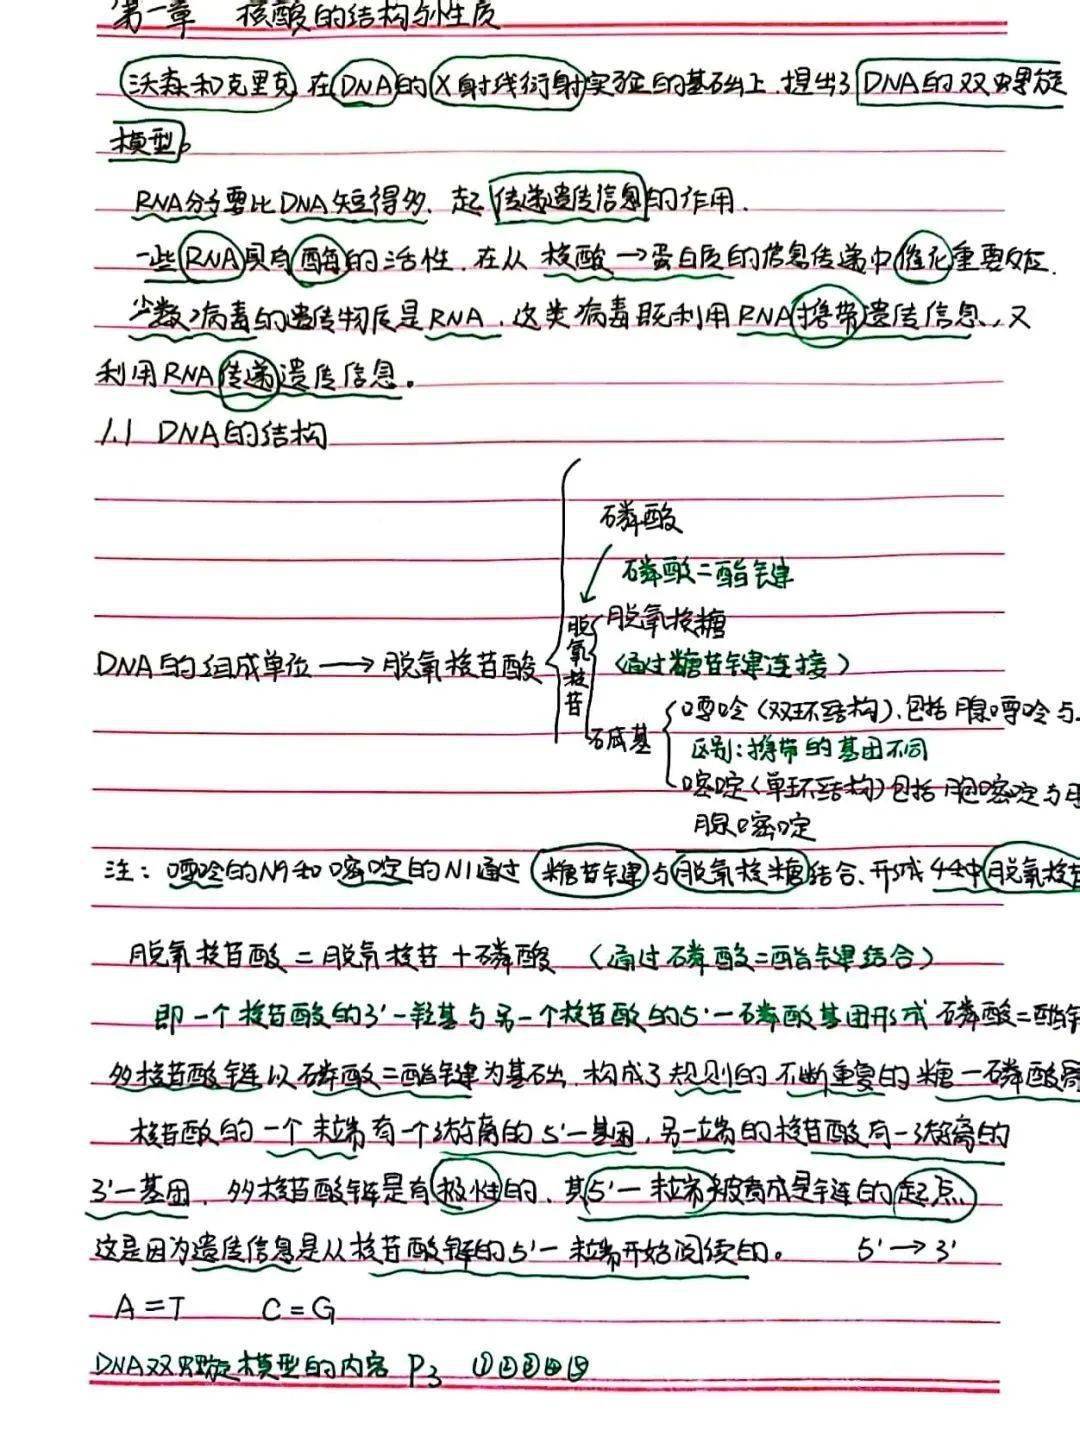 第一章 核酸的结构与性质
沃森和克里克在DNA的X射线衍射实验的基础上,提出了DNA的双螺旋
模型。
RNA分子要比DNA短得多,起传递遗传信息的作用.
一些RNA具有酶的活性,在从核酸→蛋白质的信息传递中催化重要反应.
少数病毒的遗传物质是RNA,这类病毒既利用RNA携带遗传信息,又
利用RNA传递遗传信息。
1.1 DNA的结构
磷酸
磷酸二酯键
脱氧核糖
DNA的组成单位→脱氧核苷酸
脱氧核苷
(通过糖苷键连接)
碱基
嘌呤(双环结构),包括腺嘌呤与
区别:携带的基团不同
嘧啶(单环结构)包括胞嘧啶与胸
腺嘧啶
注:嘌呤的N9和嘧啶的N1通过糖苷键与脱氧核糖结合,形成4种脱氧核苷
脱氧核苷酸=脱氧核苷+磷酸 (通过磷酸二酯键结合)
即一个核苷酸的3'-羟基与另一个核苷酸的5'-磷酸基团形成磷酸二酯键
多核苷酸链以磷酸二酯键为基础,构成了规则的不断重复的糖-磷酸骨
核苷酸的一个末端有一个游离的5'-基团,另一端的核苷酸有一游离的
3'-基团,多核苷酸链是有极性的,其5'-末端被看成是链的起点,
这是因为遗传信息是从核苷酸链的5'-末端开始阅读的。 5'→3'
A=T C=G
DNA双螺旋模型的内容 P3 ①②③④⑤